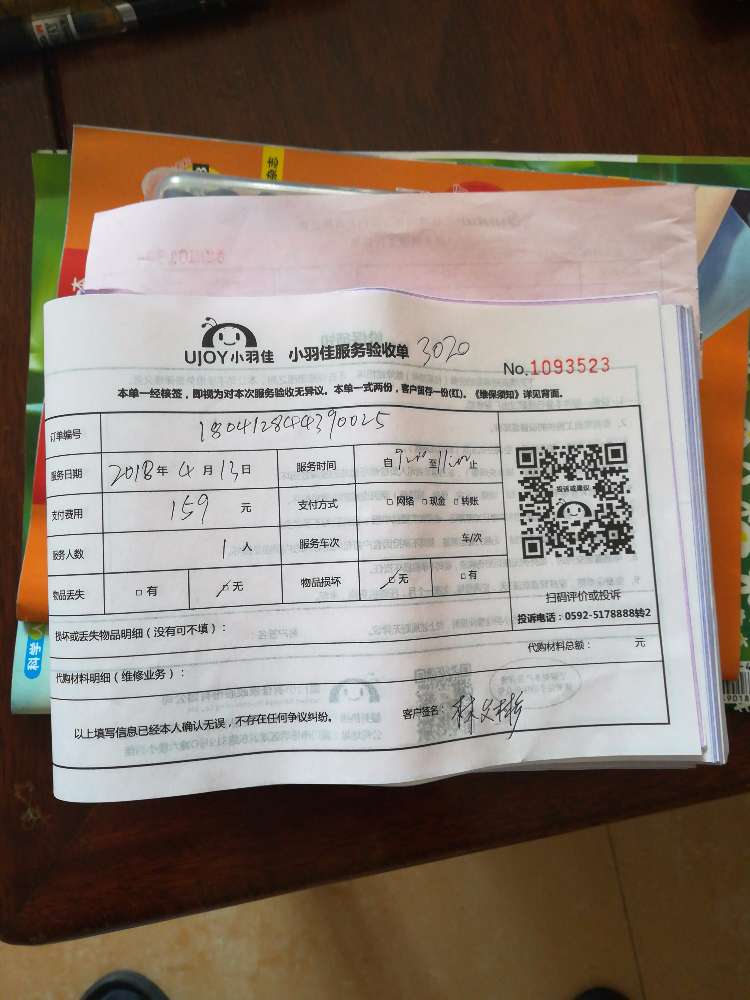 UJOY小羽佳 小羽佳服务验收单 3020
No.1093523
本单一经核签，即视为对本次服务验收无异议。本单一式两份，客户留存一份(红)。《维保须知》详见背面。
订单编号 180412844390025
服务日期 2018年4月13日 服务时间 自9:00至11:00止
支付费用 159元 支付方式 □网络 □现金 □转账
服务人数 1人 服务车次 车/次
物品丢失 □有 □无 物品损坏 □无 □有
投诉或建议
扫码评价或投诉
投诉电话：0592-5178888转2
损坏或丢失物品明细（没有可不填）：
代购材料总额： 元
代购材料明细（维修业务）：
以上填写信息已经本人确认无误，不存在任何争议纠纷。
客户签名：林文彬